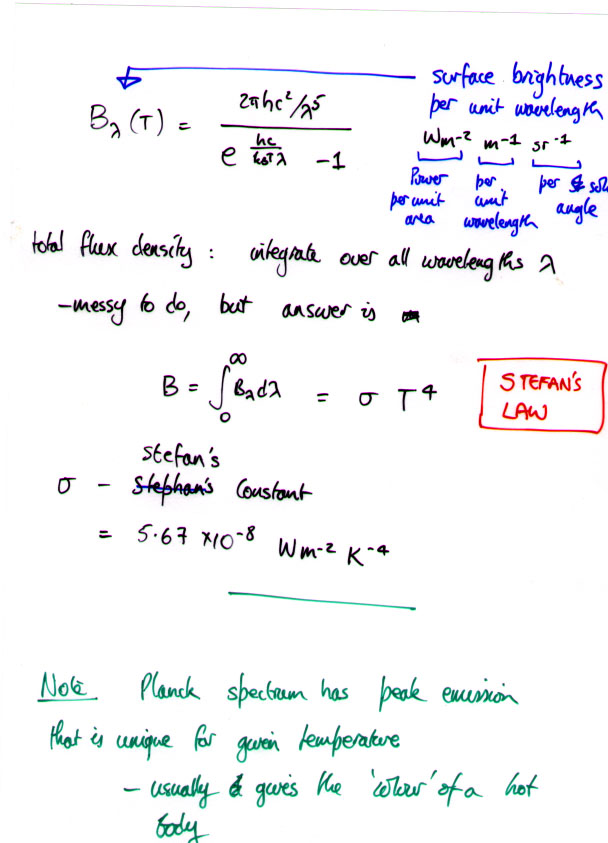 surface brightness
per unit wavelength
Wm-2 m-1 sr-1
Power per unit area
per unit wavelength
per sol angle
Bλ(T) = 2πhc²/λ⁵ / e^(hc/kBTλ) -1
total flux density : integrate over all wavelengths λ
-messy to do, but answer is
B = ∫₀^∞ Bλdλ = σ T⁴
STEFAN'S
LAW
stefan's
σ - Stephan's Constant
= 5.67 ×10⁻⁸ Wm⁻² K⁻⁴
Note Planck spectrum has peak emission
that is unique for given temperature
- usually gives the 'colour' of a hot
body